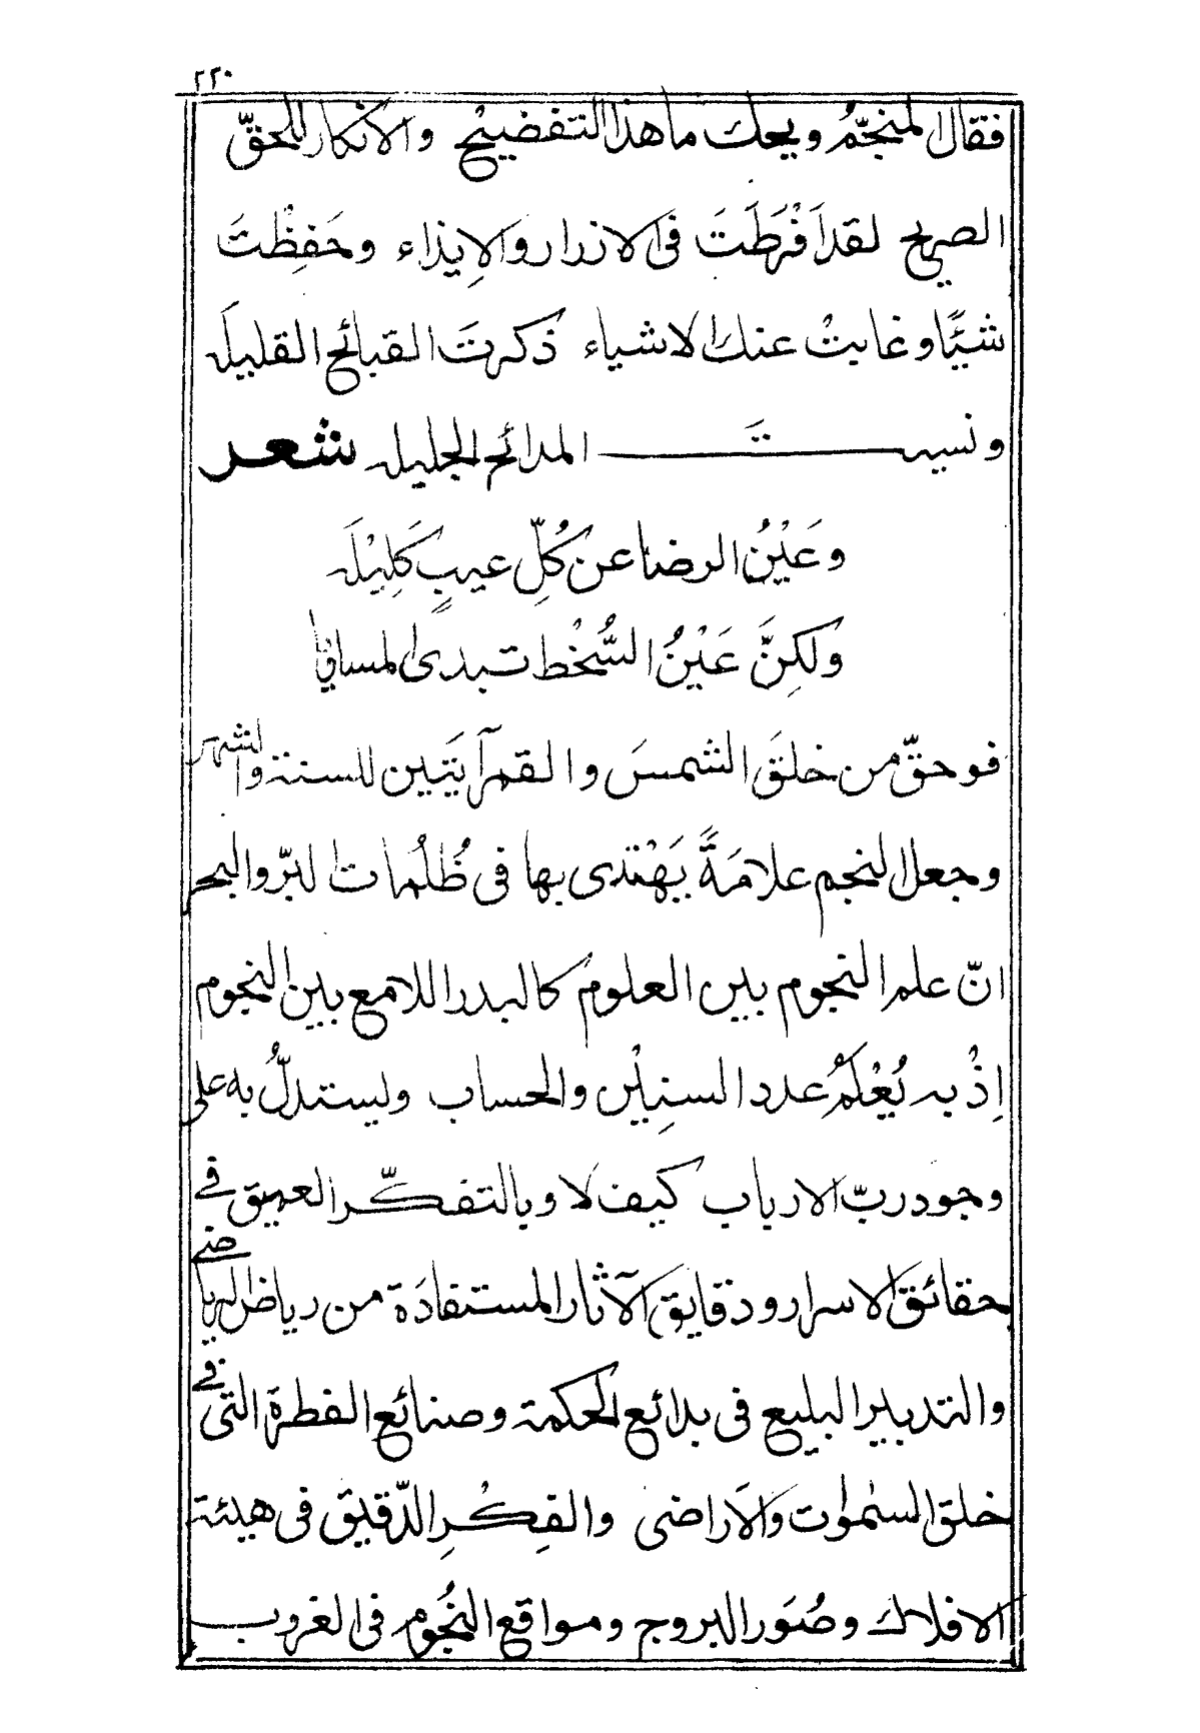 ٢٢٠
فقال المنجّمُ ويحك ما هذا التفضيح والانكار للحقّ
الصريح لقد اَفْرَطَتَ فى الازرار والاِيذاء وحَفِظْتَ
شئًا وغابتْ عنك الاشياء ذكرتَ القبائح القليلَه
ونسيتَ المدائح الجليله شعر
وعَيْنُ الرضا عن كُلِّ عيبٍ كَلِيْلَه
ولكِنَّ عَيْنُ السُّخْط تبدى المساويا
فوحقّ من خلقَ الشمسَ والقمر آيتَين للسنة والشهر
وجعل النجم علامَةً يَهْتدى بها فى ظُلُمات البرّ والبحر
انّ علم النجوم بين العلوم كالبدر اللامع بين النجوم
اِذْ به يُعْلَمُ عدد السنِيْن والحساب ويستدلُّ به على
وجود ربّ الارباب كيف لا وبالتفكّر العميق فى
حقائق الاسرار ودقايق الآثار المستفادَة من رياض الرياضى
والتدبير البليع فى بدائع الحكمة وصنائع الفطرة التى فى
خلق السمٰوات والاَراضى والفِكْرِ الدّقيق فى هيئة
الافلاك وصُوَر البروج ومواقع النجُوم فى الغروب